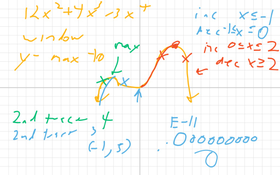 12x² + 4x³ - 3x⁴
window
y - max - 10
max
inc x ≤ -1
dec -1 ≤ x ≤ 0
inc 0 ≤ x ≤ 2
dec x ≥ 2
2nd trace, 4
2nd trace, 3
(-1, 5)
E-11
.00000000000